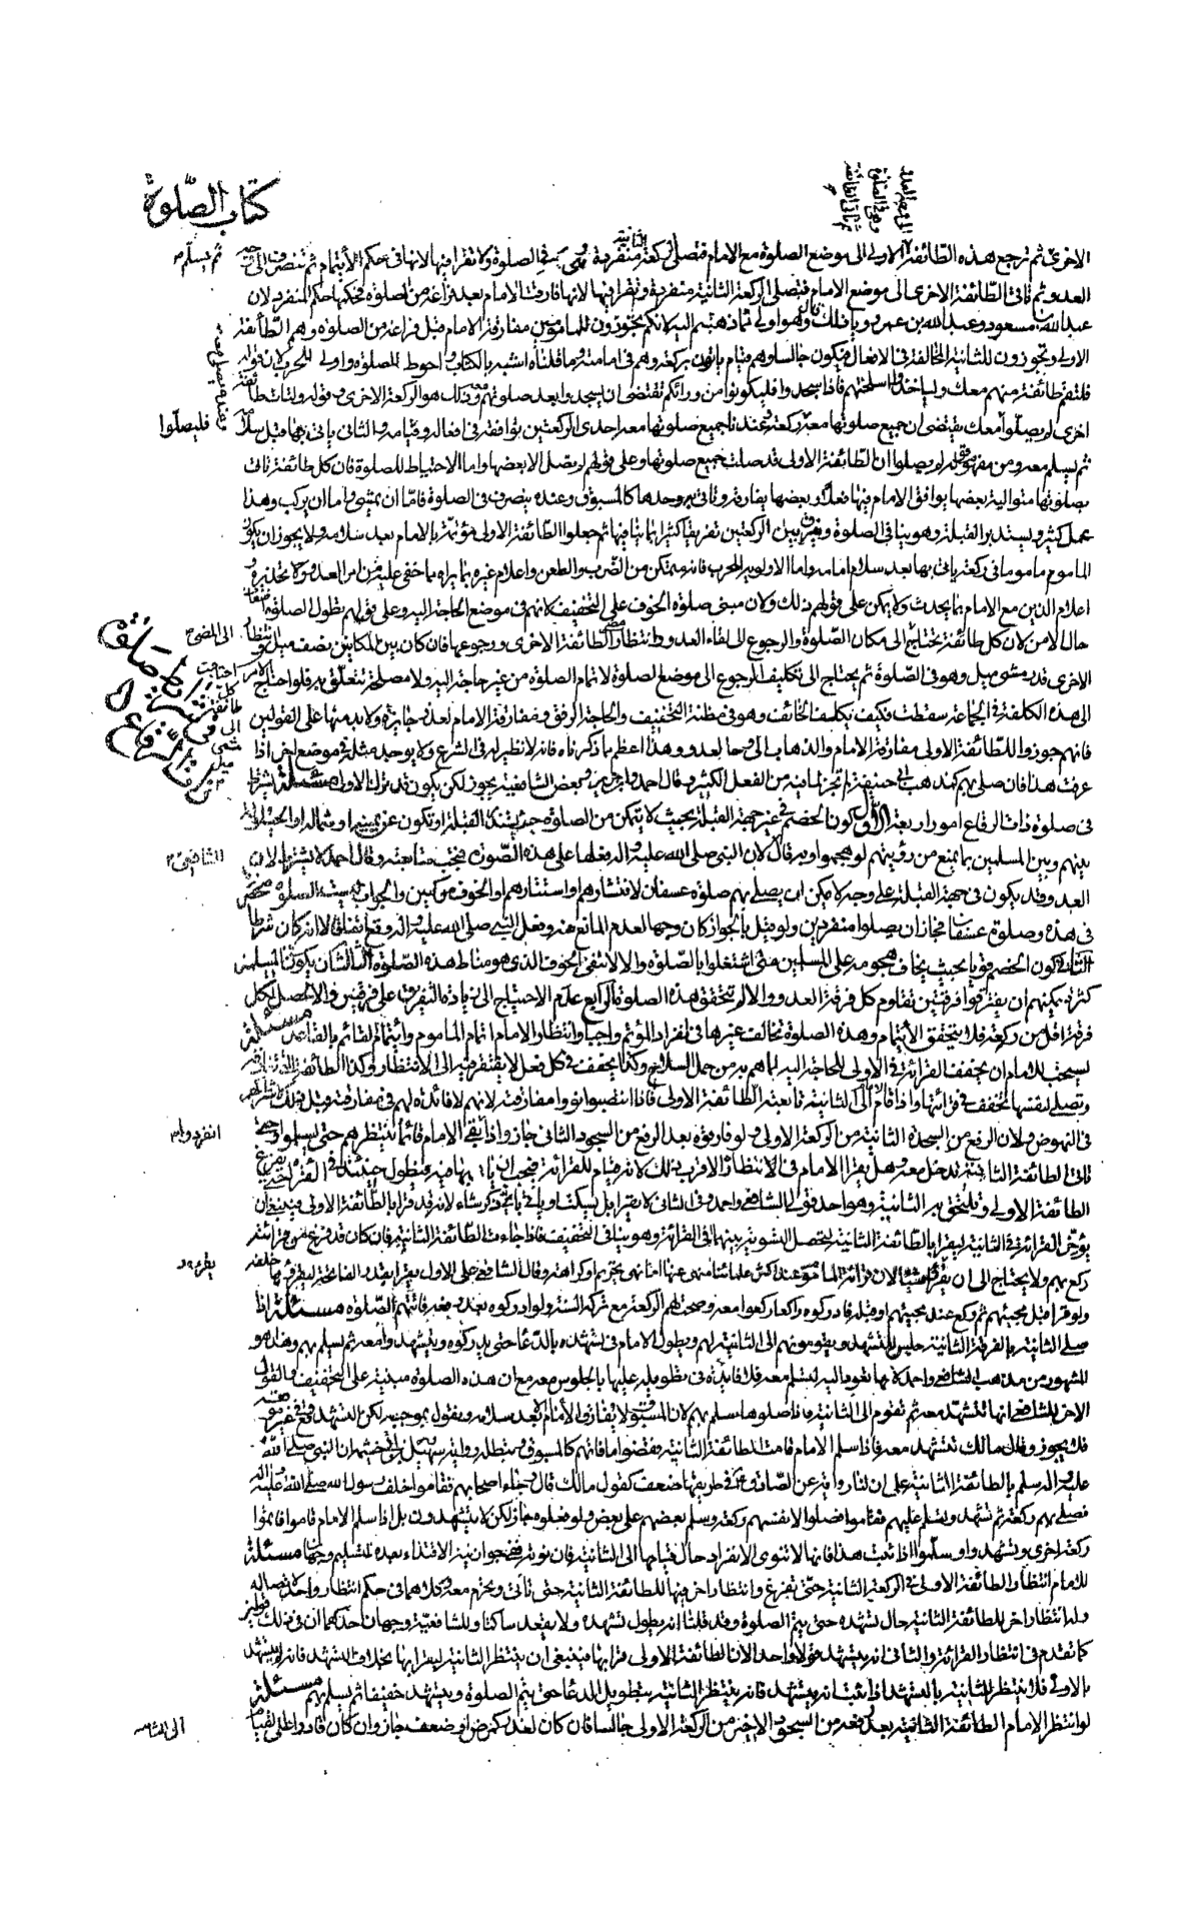 كتاب الصّلوة
الى موضع العدو وهى فى الصلوة ثم تاتى الطائفة
الاخرى ثم ترجع هذه الطّائفة الاولى الى موضع الصلوة مع الامام فتصلى الركعة الثانية منفردة فى الصلوة ولا تقرا فيها لانها فى حكم الايتمام ثم تنصرف الى
ثم يسلم
العدو ثم تاتى الطّائفة الاخرى الى موضع الامام فتصلى الركعة الثانية منفردة وتقرا فيها لانها فارقت الامام بعد فراغه من الصلوة فحكمها حكم المنفرد لان
عبد الله بن مسعود وعبد الله بن عمر رويا ذلك وهو اولى مما ذهبتم اليه لانكم تجوّزون للماموم مفارقة الامام قبل فراغه من الصلوة وهم الطّائفة
الاولى وتجوزون للثانية المخالفة فى الافعال فيكون جالسا وهم قيام ياتون بركعة وهم فى امامته وما قلناه اشبه بالكتاب واحوط للصلوة واولى للحرب لان قوله
فلتقم طائفة منهم معك ولياخذوا اسلحتهم فاذا سجدوا فليكونوا من ورائكم تقتضى ان يسجدوا بعد صلوتهم معه وذلك هو الركعة الاخرى وقوله ولتات طائفة
اخرى لم يصلّوا فليصلّوا معك يقتضى ان جميع صلوتها معه وعندنا جميع صلوتها معه احدى الركعتين توافقه فى افعاله وقيامه والثانى ياتى بها قبل سلامه
ثم يسلم معه ومن مفهوم قوله لم يصلوا ان الطّائفة الاولى قد صلت جميع صلوتها وعلى قولهم لم يصل الا بعضها واما الاحتياط للصلوة فان كل طائفة تاتى
بصلوتها متوالية بعضها يوافق الامام فيها فعلا وبعضها يفارقه وتاتى به وحدها كالمسبوق وعنده ينصرف فى الصلوة فامّا ان يمشى واما ان يركب وهذا
عمل كثير ويستدبر القبلة وهو ينافى الصلوة وتفرق بين الركعتين تفريقا كثيرا بما ينافيها ثم جعلوا الطّائفة الاولى مؤتمة بالامام بعد سلامه ولا يجوز ان يكون
الماموم ماموما فى ركعة ياتى بها بعد سلام امامه واما الاولوية للحرب فانه يتمكن من الضرب والطعن واعلام غيره بما يراه مما خفى عليه من امر العدو وتحذيره و
اعلام الذين مع الامام بما يحدث ولا يمكن على قولهم ذلك ولان مبنى صلوة الخوف على التخفيف لانهم فى موضع الحاجة اليه وعلى قولهم تطول الصلوة
حال الامن لان كل طائفة تحتاج الى مكان الصّلوة والرجوع الى لقاء العدو وانتظار الطائفة الاخرى ورجوعها فان كان بين المكانين نصف ميل
الى المضى
احتاجت كل طائفة الى مشى ميل
الاخرى قدر مشى ميل وهو فى الصّلوة ثم يحتاج الى تكليف الرجوع الى موضع الصلوة لاتمام الصلوة من غير حاجة اليه ولا مصلحة تتعلّق به فلو احتاج الامن
الى هذه الكلفة فى الجماعة سقطت فكيف يكلف الخائف وهو فى مظنة التخفيف والحاجة الى الرفق ومفارقة الامام لعذر جايزة ولا بد منها على القولين
فانهم جوزوا للطّائفة الاولى مفارقة الامام والذهاب الى وجاه العدو وهذا اعظم مما ذكرناه فانه لا نظير له فى الشرع ولا يوجد مثله فى موضع اخر اذا
عرفت هذا فان صلى بهم كمذهب ابى حنيفة لم تجز لما فيه من الفعل الكثير وقال احمد وابن جرير وبعض الشافعية يجوز لكن يكون قد ترك الاولى مسئلة يشترط
فى صلوة ذات الرقاع
فى صلوة ذات الرقاع امور اربعة الاول كون الخصم فى غير جهة القبلة بحيث لا يتمكن من الصلوة حتى يستدبر القبلة او تكون عن يمينه او شماله او الحيلولة
بينهم وبين المسلمين بما يمنع من رؤيتهم لو هجموا وبه قال الشافعى لان النبى صلى الله عليه واله فعلها على هذه الصّورة فتجب متابعته وقال احمد لا يشترط لان
العدو قد يكون فى جهة القبلة على وجه لا يمكن ان يصلى بهم صلوة عسفان لانتشارهم واستتارهم او الخوف من كمين والجواب ليست الصلوة منحصرة
فى هذه وصلوة عسفان فجاز ان يصلوا منفردين ولو قيل بالجواز كان وجها لعدم المانع منه وفعل النبى صلى الله عليه واله وقع اتفاقا لا انه كان شرطا
الثانى كون الخصم قويا بحيث يخاف هجومه على المسلمين متى اشتغلوا بالصلوة والا لانتفى الخوف الذى هو مناط هذه الصّلوة الثالث ان يكون فى المسلمين
كثرة يمكنهم ان يفترقوا فرقتين تقاوم كل فرقة العدو والا لم تتحقق هذه الصلوة الرابع عدم الاحتياج الى زيادة التفريق على فرقتين والا لحصل لكل
فرقة اقل من ركعة فلا يتحقق الايتمام وهذه الصلوة تخالف غيرها فى انفراد المؤتم واجبا وانتظار الامام اتمام الماموم وائتمام القائم بالقاعد مسئلة
يستحب للامام ان يخفف القرائة فى الاولى للحاجة اليه لما هم به من حمل السلاح وكذا يخفف فى كل فعل لا يفتقر فيه الى الانتظار وكذا الطائفة
وتصلى لنفسها تخفف فى قرائتها واذا قام الى الثانية تابعته الطّائفة الاولى فاذا انتصبوا نووا مفارقته لانهم لا فائدة لهم فى مفارقته قبل ذلك لاشتراكهم
فى النهوض ولان الرفع من السجدة الثانية من الركعة الاولى ولو فارقوه بعد الرفع من السجود الثانى جاز واذا انفردوا بقى الامام قائما ينتظرهم حتى يسلموا و
تاتى الطائفة الثانية تدخل معه وهل يقرا الامام فى الانتظار الاقرب ذلك لانه قيام للقرائة فيجب ان ياتى بها فيه فتطول حينئذ القرائة حتى يفرغ
الطائفة الاولى وتلتحق به الثانية وهو احد قولى الشافعى واحمد وفى الثانى لا يقرا بل يسكت او ياتى باى ذكر شاء لانه قد قرا بالطّائفة الاولى فينبغى ان
يؤخر القرائة فى الثانية ليقرا بالطّائفة الثانية لتحصل التسوية بينهما فى القرائة وهو ينافى التخفيف فاذا جاءت الطّائفة الثانية فان كان قد فرغ من قرائته
ركع بهم ولا يحتاج الى ان يقرا شيئا لان قرائة الماموم عند اكثر علمائنا منهى عنها اما نهى تحريم او كراهة وقال الشافعى على الاول يقرا بقدر الفاتحة ليقرؤا خلفه
ولو قرا قبل مجيئهم ثم ركع عند مجيئهم او قبله فادركوه راكعا ركعوا معه وصحت لهم الركعة مع تركه السنة ولو ادركوه بعد رفعه فاتتهم الصّلوة مسئلة اذا
صلى الثانية بالفرقة الثانية جلس للتشهد ويقومون هم الى الثانية لهم ويطول الامام فى تشهده بالدّعا حتى يدركوه ويتشهدوا معه ثم يسلم بهم وهذا هو
المشهور من مذهب الشافعى واحمد لانها تعود اليه لتسلم معه فلا فايدة فى تطويله عليها بالجلوس معه مع ان هذه الصلوة مبنية على التخفيف والقول
الاخر للشافعى انها تتشهد معه ثم تقوم الى الثانية فاذا صلوها سلم بهم لان المسبوق لا يفارق الامام الا بعد سلامه ونقول بموجبه لكن التشهد فى غير موضعه
فلا يجوز وقال مالك تتشهد معه فاذا سلم الامام قامت الطائفة الثانية وقضوا ما فاتهم كالمسبوق ويبطله رواية سهل بن ابى حثمة ان النبى صلى الله
عليه واله سلم بالطائفة الثانية على ان لنا رواية عن الصادق ع فى طريقها ضعف كقول مالك قال وجاء اصحابهم فقاموا خلف رسول الله صلى الله عليه واله
فصلى بهم ركعة ثم تشهد وسلم عليهم فقاموا فصلوا لانفسهم ركعة وسلم بعضهم على بعض ولو فعلوه جاز لكن لا يتشهدون بل اذا سلم الامام قاموا فاتموا
ركعة اخرى وتشهدوا وسلّموا اذا ثبت هذا فانها لا تنوى الانفراد حال قيامها الى الثانية فان نوته ففى جواز نية الاقتداء بعده للتسليم وجهان مسئلة
للامام انتظار الطائفة الاولى فى الركعة الثانية حتى تفرغ وانتظار اخر فيها للطائفة الثانية حتى تاتى وتحرم معه وكلاهما فى حكم انتظار واحد لاتصاله
وله انتظار اخر للطائفة الثانية حال تشهده حتى يتم الصلوة وقد قلنا انه يطول تشهده ولا يقعد ساكتا وللشافعيّة وجهان احدهما ان فى ذلك قولين
كما تقدم فى انتظار القرائة والثانى انه يتشهد قولا واحدا لان الطائفة الاولى قرا بها فينبغى ان ينتظر الثانية ليقرا بها بخلاف التشهد فانه لم يتشهد
بالاولى فلا ينتظر الثانية بالتشهد اذا ثبت انه يتشهد فانه ينتظر الثانية بتطويل الدعا حتى يتم الصلوة ويتشهد خفيفا ثم يسلم بهم مسئلة
لو انتظر الامام الطائفة الثانية بعد رفعه من السجود الاخير من الركعة الاولى جالسا فان كان لعذر كمرض او ضعف جاز وان كان قادرا على القيام
الى الثانية